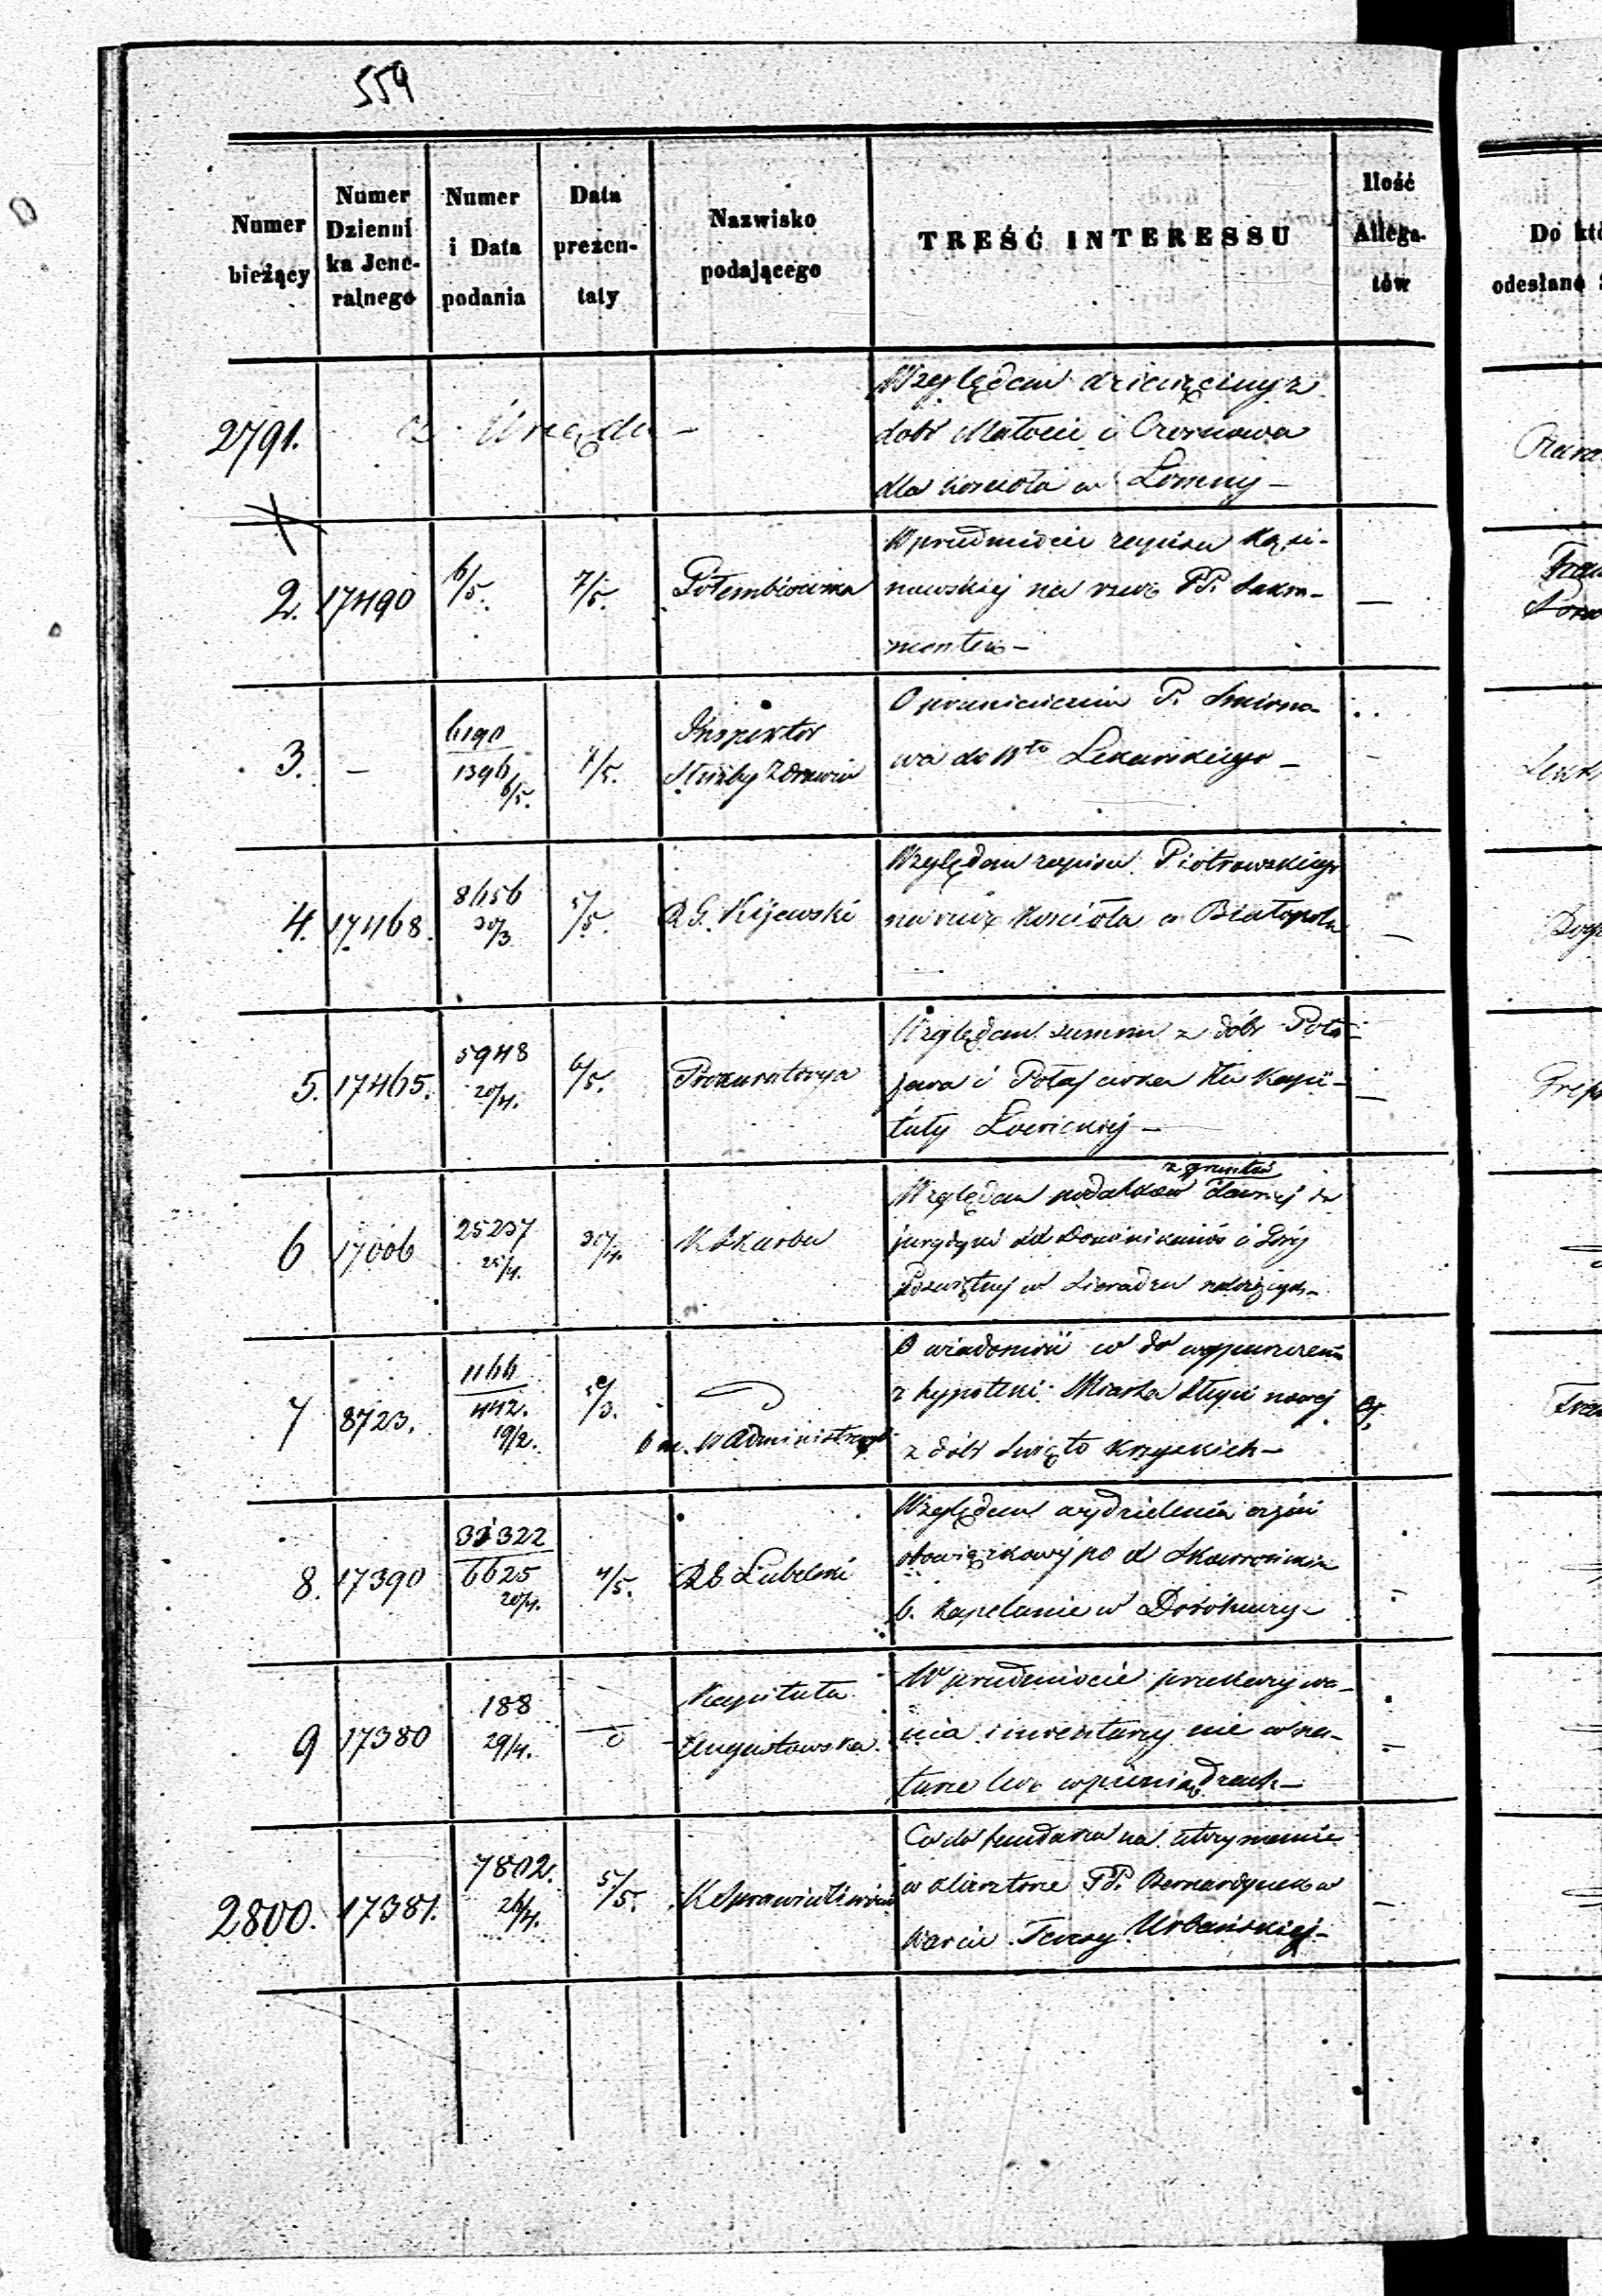 559
Numer bieżący
Numer Dzienni ka Jene- ralnego
Numer i Data podania
Data prezen- taty
Nazwisko podającego
TREŚĆ INTERESSU
Ilość Allega- tów
Do któ
odesłano
2791. z Urzędu -
Względem dziesięciny z
dóbr Małocic i Czosnowa
dla kościoła w Łomny -
2. 17490 6/5. 7/5. Gołembiowska
W przedmiocie zapisu
nowskiej na rzecz PP. Sakra-
mentek -
3. - 6190 1396 6/5. 7/5. Inspektor Służby Zdrowia
O przeniesienie P. Smirno-
wa do Lekarskiego -
4. 17468. 8656 30/3 5/5. R. G. Kijewski
Względem zapisu Piotrowskiego
na rzecz kościoła w Białopolu
5. 17465. 5948 20/4. 6/5. Prokuratorya
Względem summ z dóbr
i dla Kapi-
tuły Łowickiej -
6 17006 25237 25/4. 30/4. K. Skarbu
z gruntów
Względem podatków dawniej do
jurydyki XX Dominikanów i
w Sieradzu należących -
7 8723. 1166 442. 19/2. 5/3. b. m. Administracyi
O wiadomość co do wypuszczenia
z hypoteki Miasta Słupi nowej
z dóbr Święto Krzyskich -
8. 17390 6625 20/4. 4/5. R. G. Lubelski
Względem wydzielenia części
obowiązkowej po X
b. Kapelanie w Dorohuczy -
9 17380 188 29/4. Kapituła Augustowska
W przedmiocie przekazywa-
nia inwentarzy nie w na-
turze lecz w pieniądzach -
2800. 17381. 7802. 26/4. 5/5. K. Sprawiedliwości
Co do funduszu na utrzymanie
w klasztorze PP. Bernardynek w
Warcie Teresy Urbańskiej -